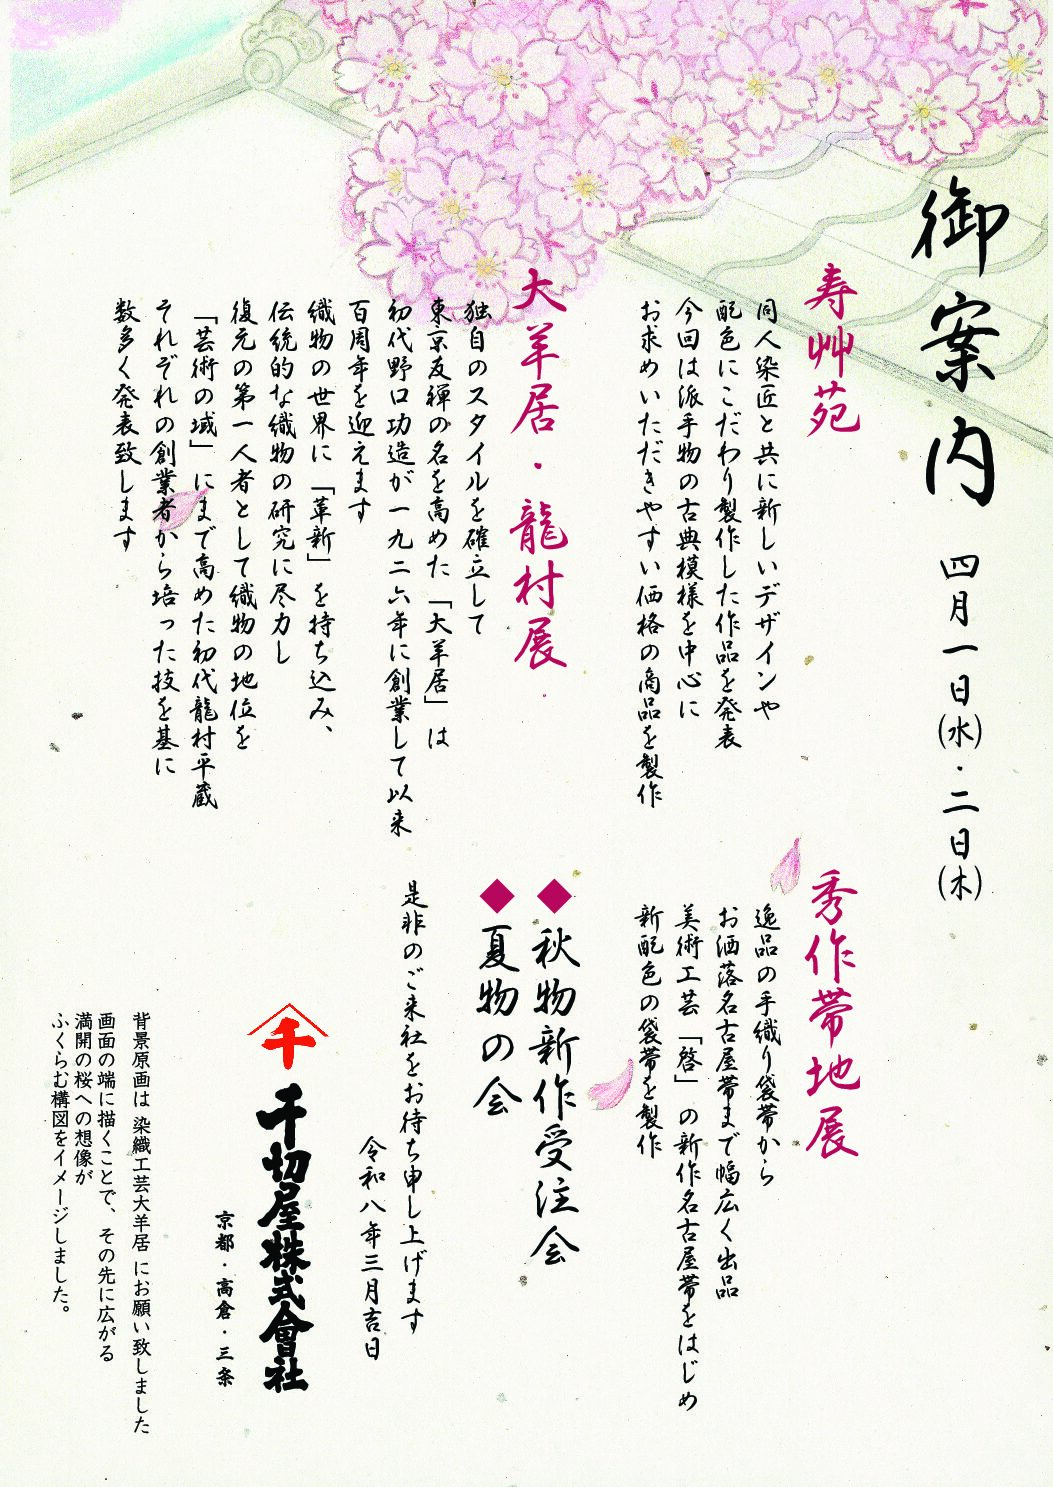 御案内 四月一日(水)・二日(木)
寿艸苑
同人染匠と共に新しいデザインや
配色にこだわり製作した作品を発表
今回は派手物の古典模様を中心に
お求めいただきやすい価格の商品を製作
大羊居・龍村展
独自のスタイルを確立して
東京友禅の名を高めた「大羊居」は
初代野口功造が一九二六年に創業して以来
百周年を迎えます
織物の世界に「革新」を持ち込み、
伝統的な織物の研究に尽力し
復元の第一人者として織物の地位を
「芸術の域」にまで高めた初代龍村平蔵
それぞれの創業者から培った技を基に
数多く発表致します
秀作帯地展
逸品の手織り袋帯から
お洒落名古屋帯まで幅広く出品
美術工芸「啓」の新作名古屋帯をはじめ
新配色の袋帯を製作
◆秋物新作受注会
◆夏物の会
是非のご来社をお待ち申し上げます
令和八年三月吉日
千
千切屋株式會社
京都・高倉・三条
背景原画は 染織工芸大羊居 にお願い致しました
画面の端に描くことで、その先に広がる
満開の桜への想像が
ふくらむ構図をイメージしました。